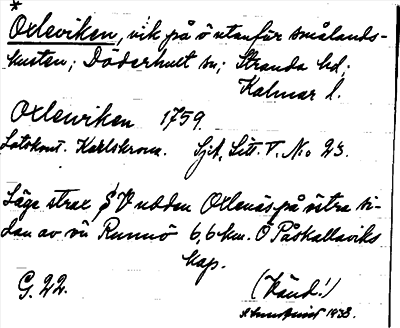 *
Oxleviken, vik på ö utanför smålands-
kusten; Döderhult sn; Stranda hd;
Kalmar l.
Oxleviken 1759.
Lotskont. Karlskrona. Sjk. Litt. V. No 23.
Läge strax S V udden Oxlenäs på västra si-
dan av ön Runnö 6,6 km. O Påskallaviks
kap.
G. 22.
(Känd!)
1938.